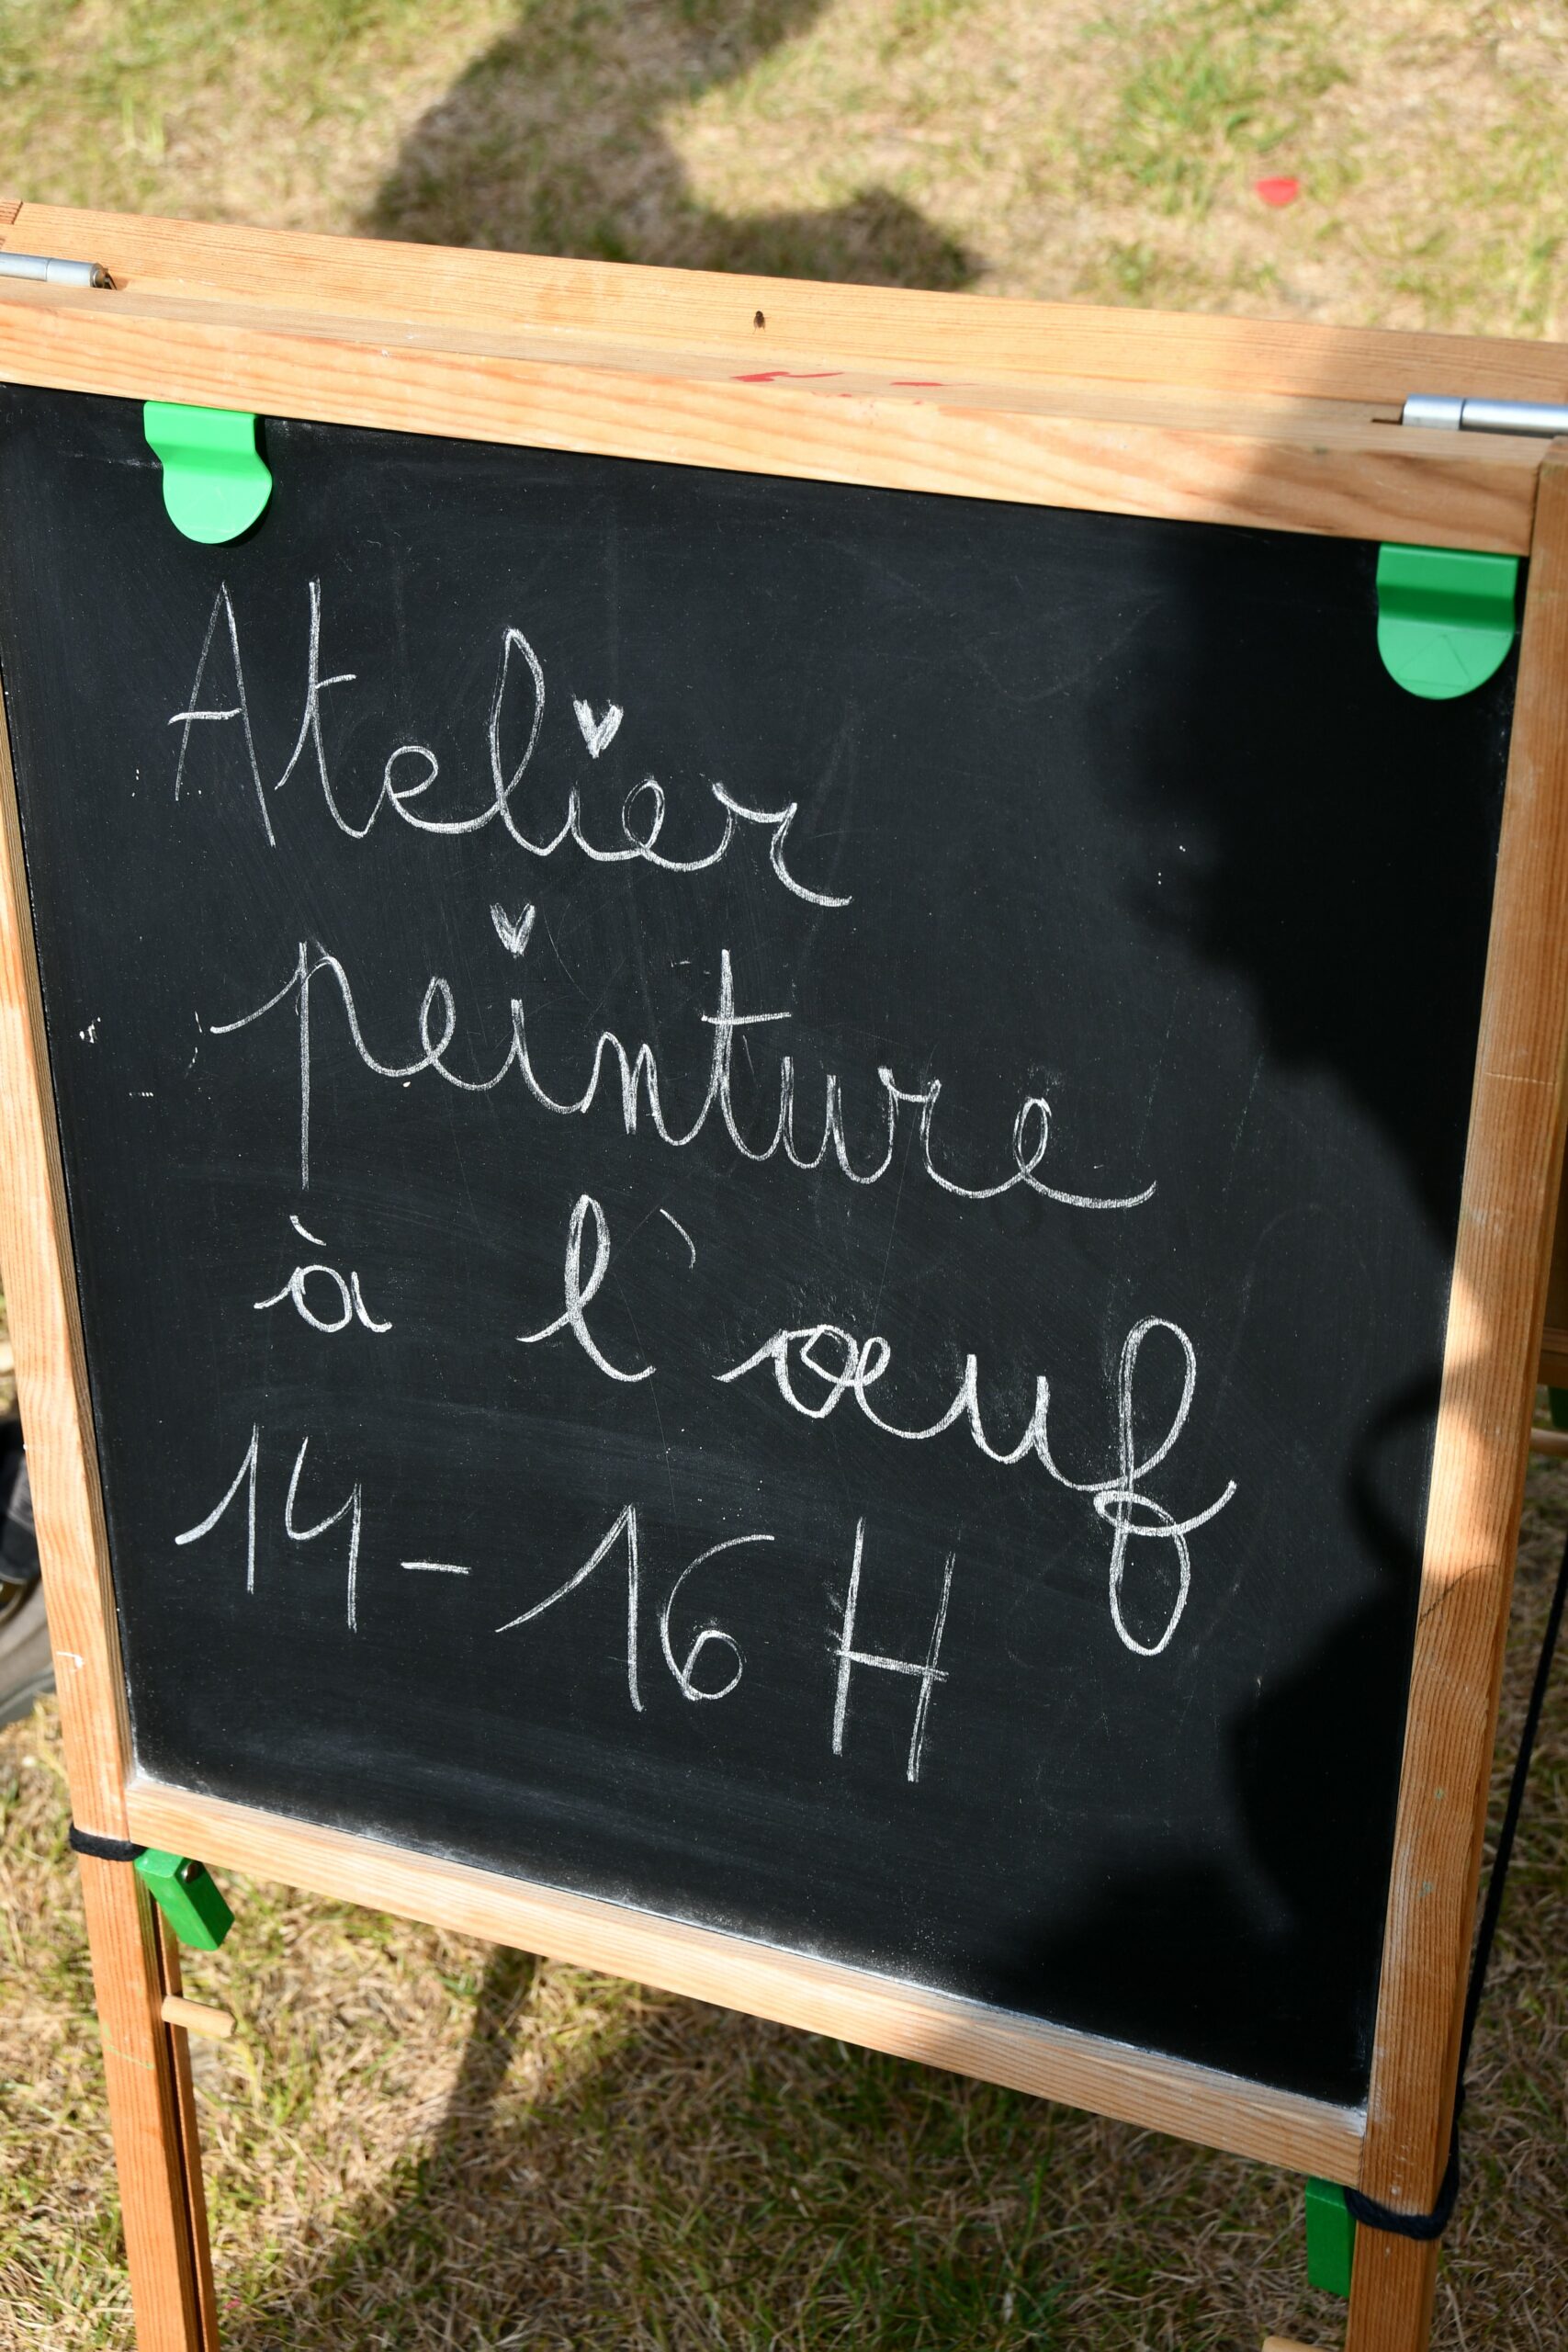 Atelier
peinture
à l'œuf
14-16H